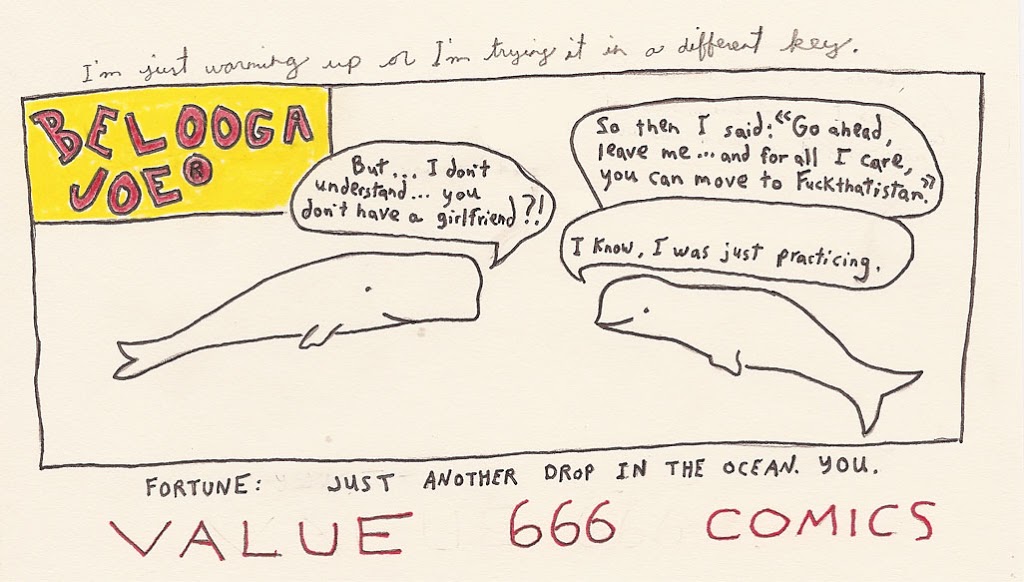 I'm just warming up or I'm trying it in a different key.
BELOOGA
JOE®
So then I said: "Go ahead,
leave me... and for all I care,
you can move to Fuckthatistan."
But... I don't
understand... you
don't have a girlfriend?!
I know, I was just practicing.
FORTUNE: JUST ANOTHER DROP IN THE OCEAN. YOU.
VALUE 666 COMICS